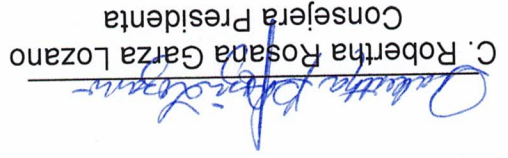 C. Robertha Rosada Garza Lozano
Consejera Presidenta